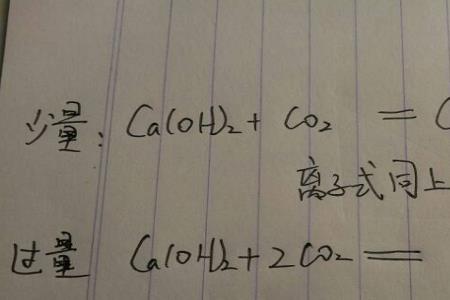 少量: Ca(OH)₂ + CO₂ = C
离子式同上
过量 Ca(OH)₂ + 2CO₂ =